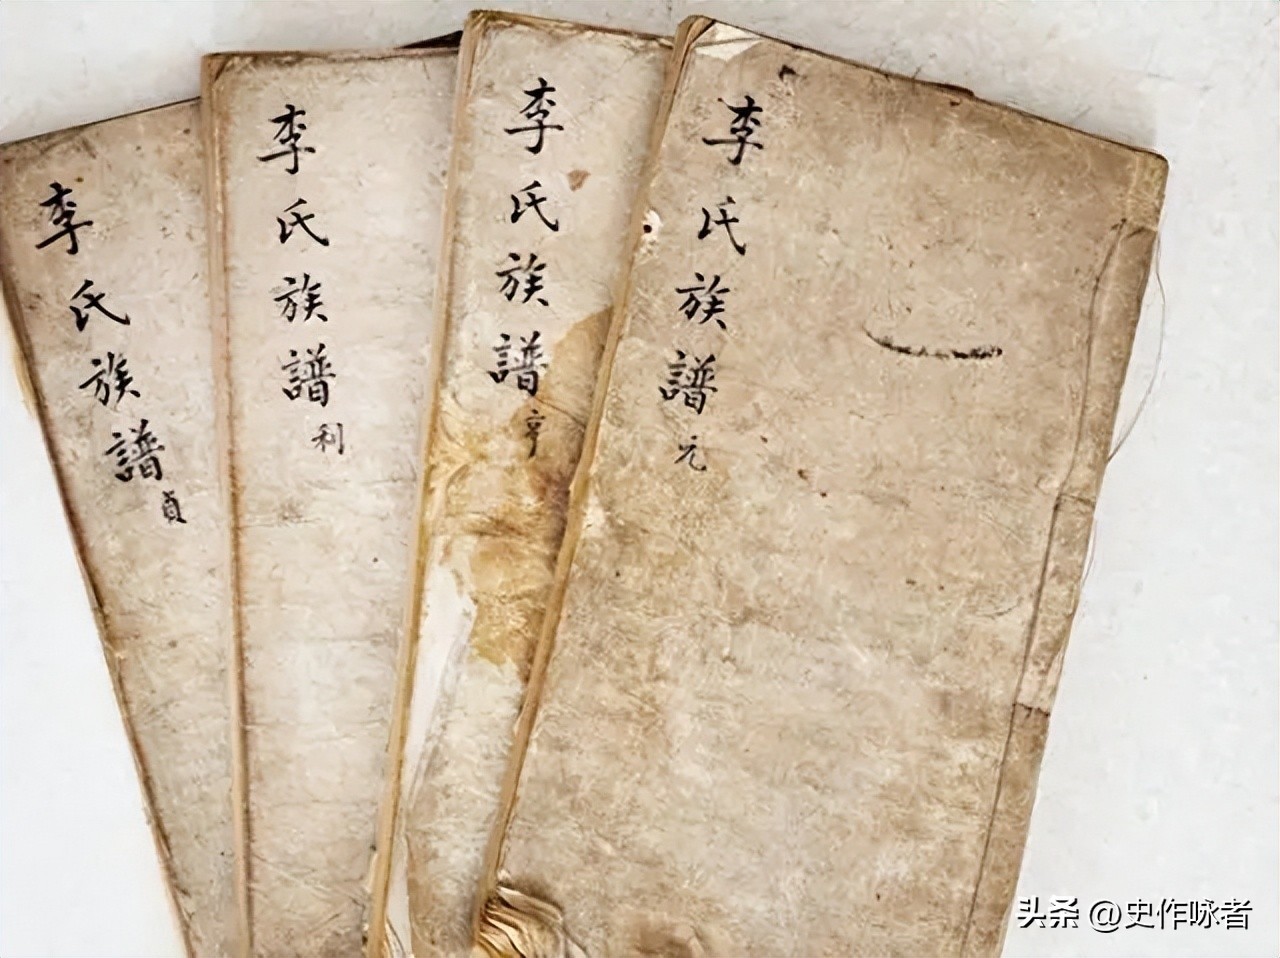 李氏族譜元
李氏族譜亨
李氏族譜利
李氏族譜貞
头条 @史作咏者